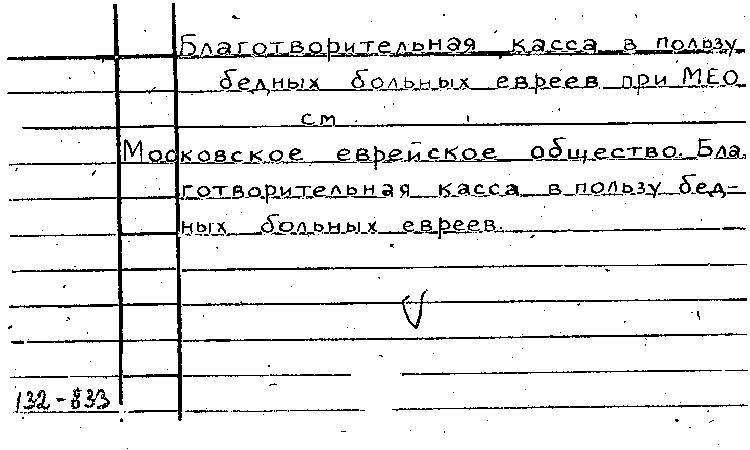 Благотворительная касса в пользу
бедных больных евреев при МЕО
см
Московское еврейское общество. Бла
готворительная касса в пользу бед-
ных больных евреев.
132-833